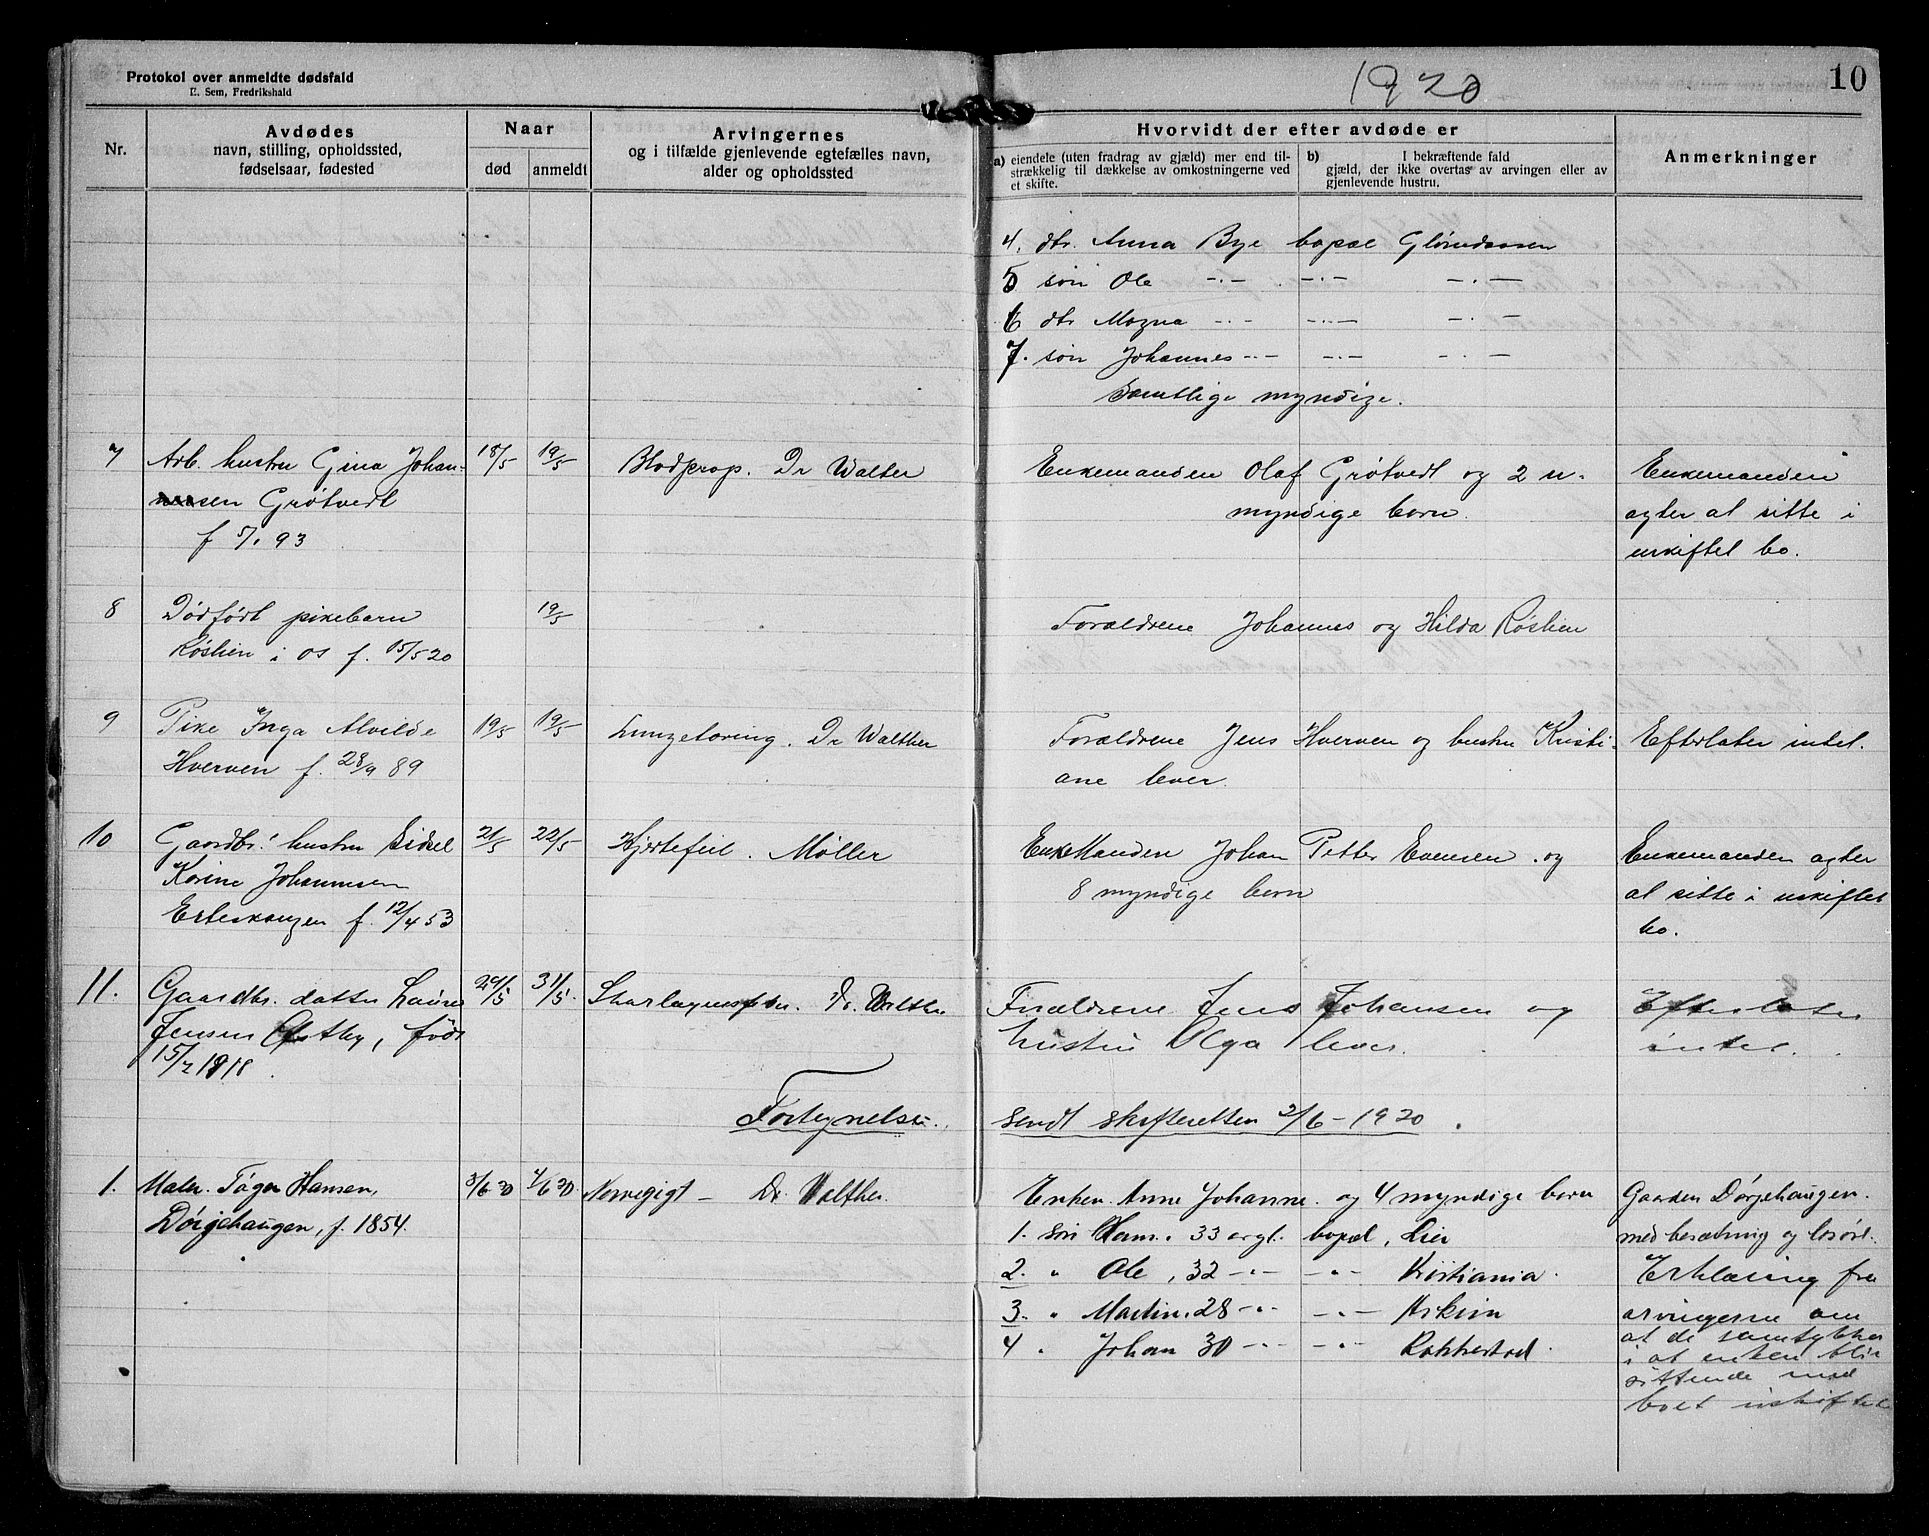 Protokol over anmeldte dødsfald
E. Sem, Fredrikshald
1920
10
Nr.
Avdødes
navn, stilling, opholdssted,
fødselsaar, fødested
Naar
død
anmeldt
Arvingernes
og i tilfælde gjenlevende egtefælles navn,
alder og opholdssted
Hvorvidt der efter avdøde er
a) eiendele (uten fradrag av gjæld) mer end til-
strækkelig til dækkelse av omkostningerne ved
et skifte.
b) I bekræftende fald
gjæld, der ikke overtas av arvingen eller av
gjenlevende hustru.
Anmerkninger
4. dtr. Anna Bye bopæl
5 søn Ole -.- -.- -.-
6 dtr Magna -.- -.- -.-
7. søn Johannes -.- -.- -.-
Samtlige myndige.
7
Arb. hustru Gina Johan-
nesen Grøtvedt
f 5/1 93
18/5
19/5
Blodprop. Dr Walter
Enkemanden Olaf Grøtvedt og 2 u-
myndige børn.
Enkemanden
agter at sitte i
uskiftet bo.
8
Dødfødt pikebarn
Røshen i os f. 15/5 20
19/5
Forældrene Johannes og Hilda Røshen
9
Pike Inga Alvilde
Hverven f. 28/9 89
19/5
19/5
Lungetæring. Dr Walther
Forældrene Jens Hverven og hustru Kristi-
ane lever.
Efterlater intet.
10
Gaardbr. hustru Sidsel
Karine Johannesen
Erteskaugen f. 12/4 53
21/5
22/5
Hjertefeil. Møller
Enkemanden Johan Petter Evensen og
8 myndige børn
Enkemanden agter
at sitte i uskiftet
bo.
11.
Gaardbr. datter Laura
Jensen Østby, født
15/7 1918.
29/5
31/5.
Skarlagensfeber. Dr. Walther
Forældrene Jens Johansen og
hustru Olga lever.
Efterlater
intet.
Fortegnelse
sendt skifteretten 2/6-1920.
1.
Maler. Tøger Hansen,
Dørjehaugen, f. 1854.
3/6 20
4/6 20.
Nervegigt - Dr. Walther
Enken Anne Johanne og 4 myndige børn
1. søn Ham. 33 aar gl. bopæl, Lier
2. " Ole, 32 -"- -"- Kristiania.
3. " Martin. 28 -"- -"- Askim
4 " Johan 30 -"- -"- Rakkestad.
Gaarden Dørjehaugen.
med besætning og løsøre.
Erklæring fra
arvingerne om
at de samtykker
i at enken blir
sittende med
boet uskiftet